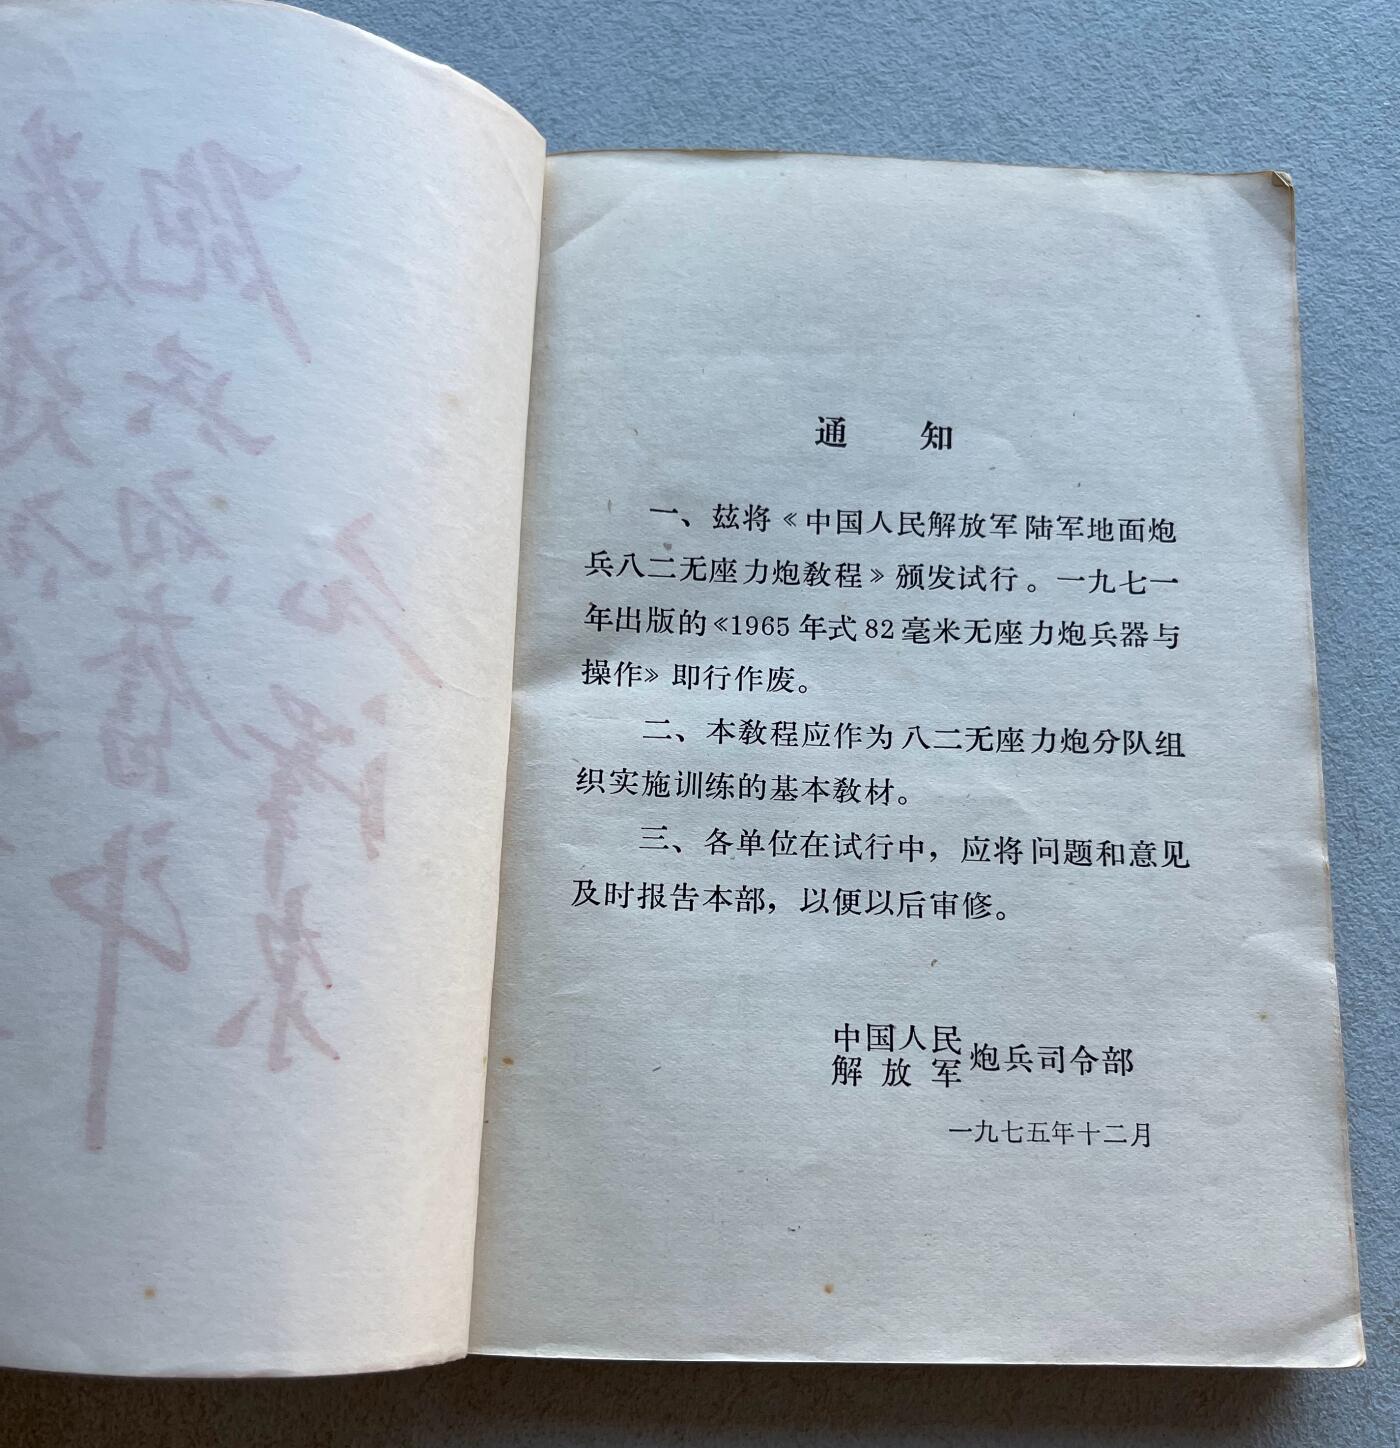 通 知
一、兹将《中国人民解放军陆军地面炮
兵八二无座力炮教程》颁发试行。一九七一
年出版的《1965年式82毫米无座力炮兵器与
操作》即行作废。
二、本教程应作为八二无座力炮分队组
织实施训练的基本教材。
三、各单位在试行中，应将问题和意见
及时报告本部，以便以后审修。
中国人民
解放军 炮兵司令部
一九七五年十二月